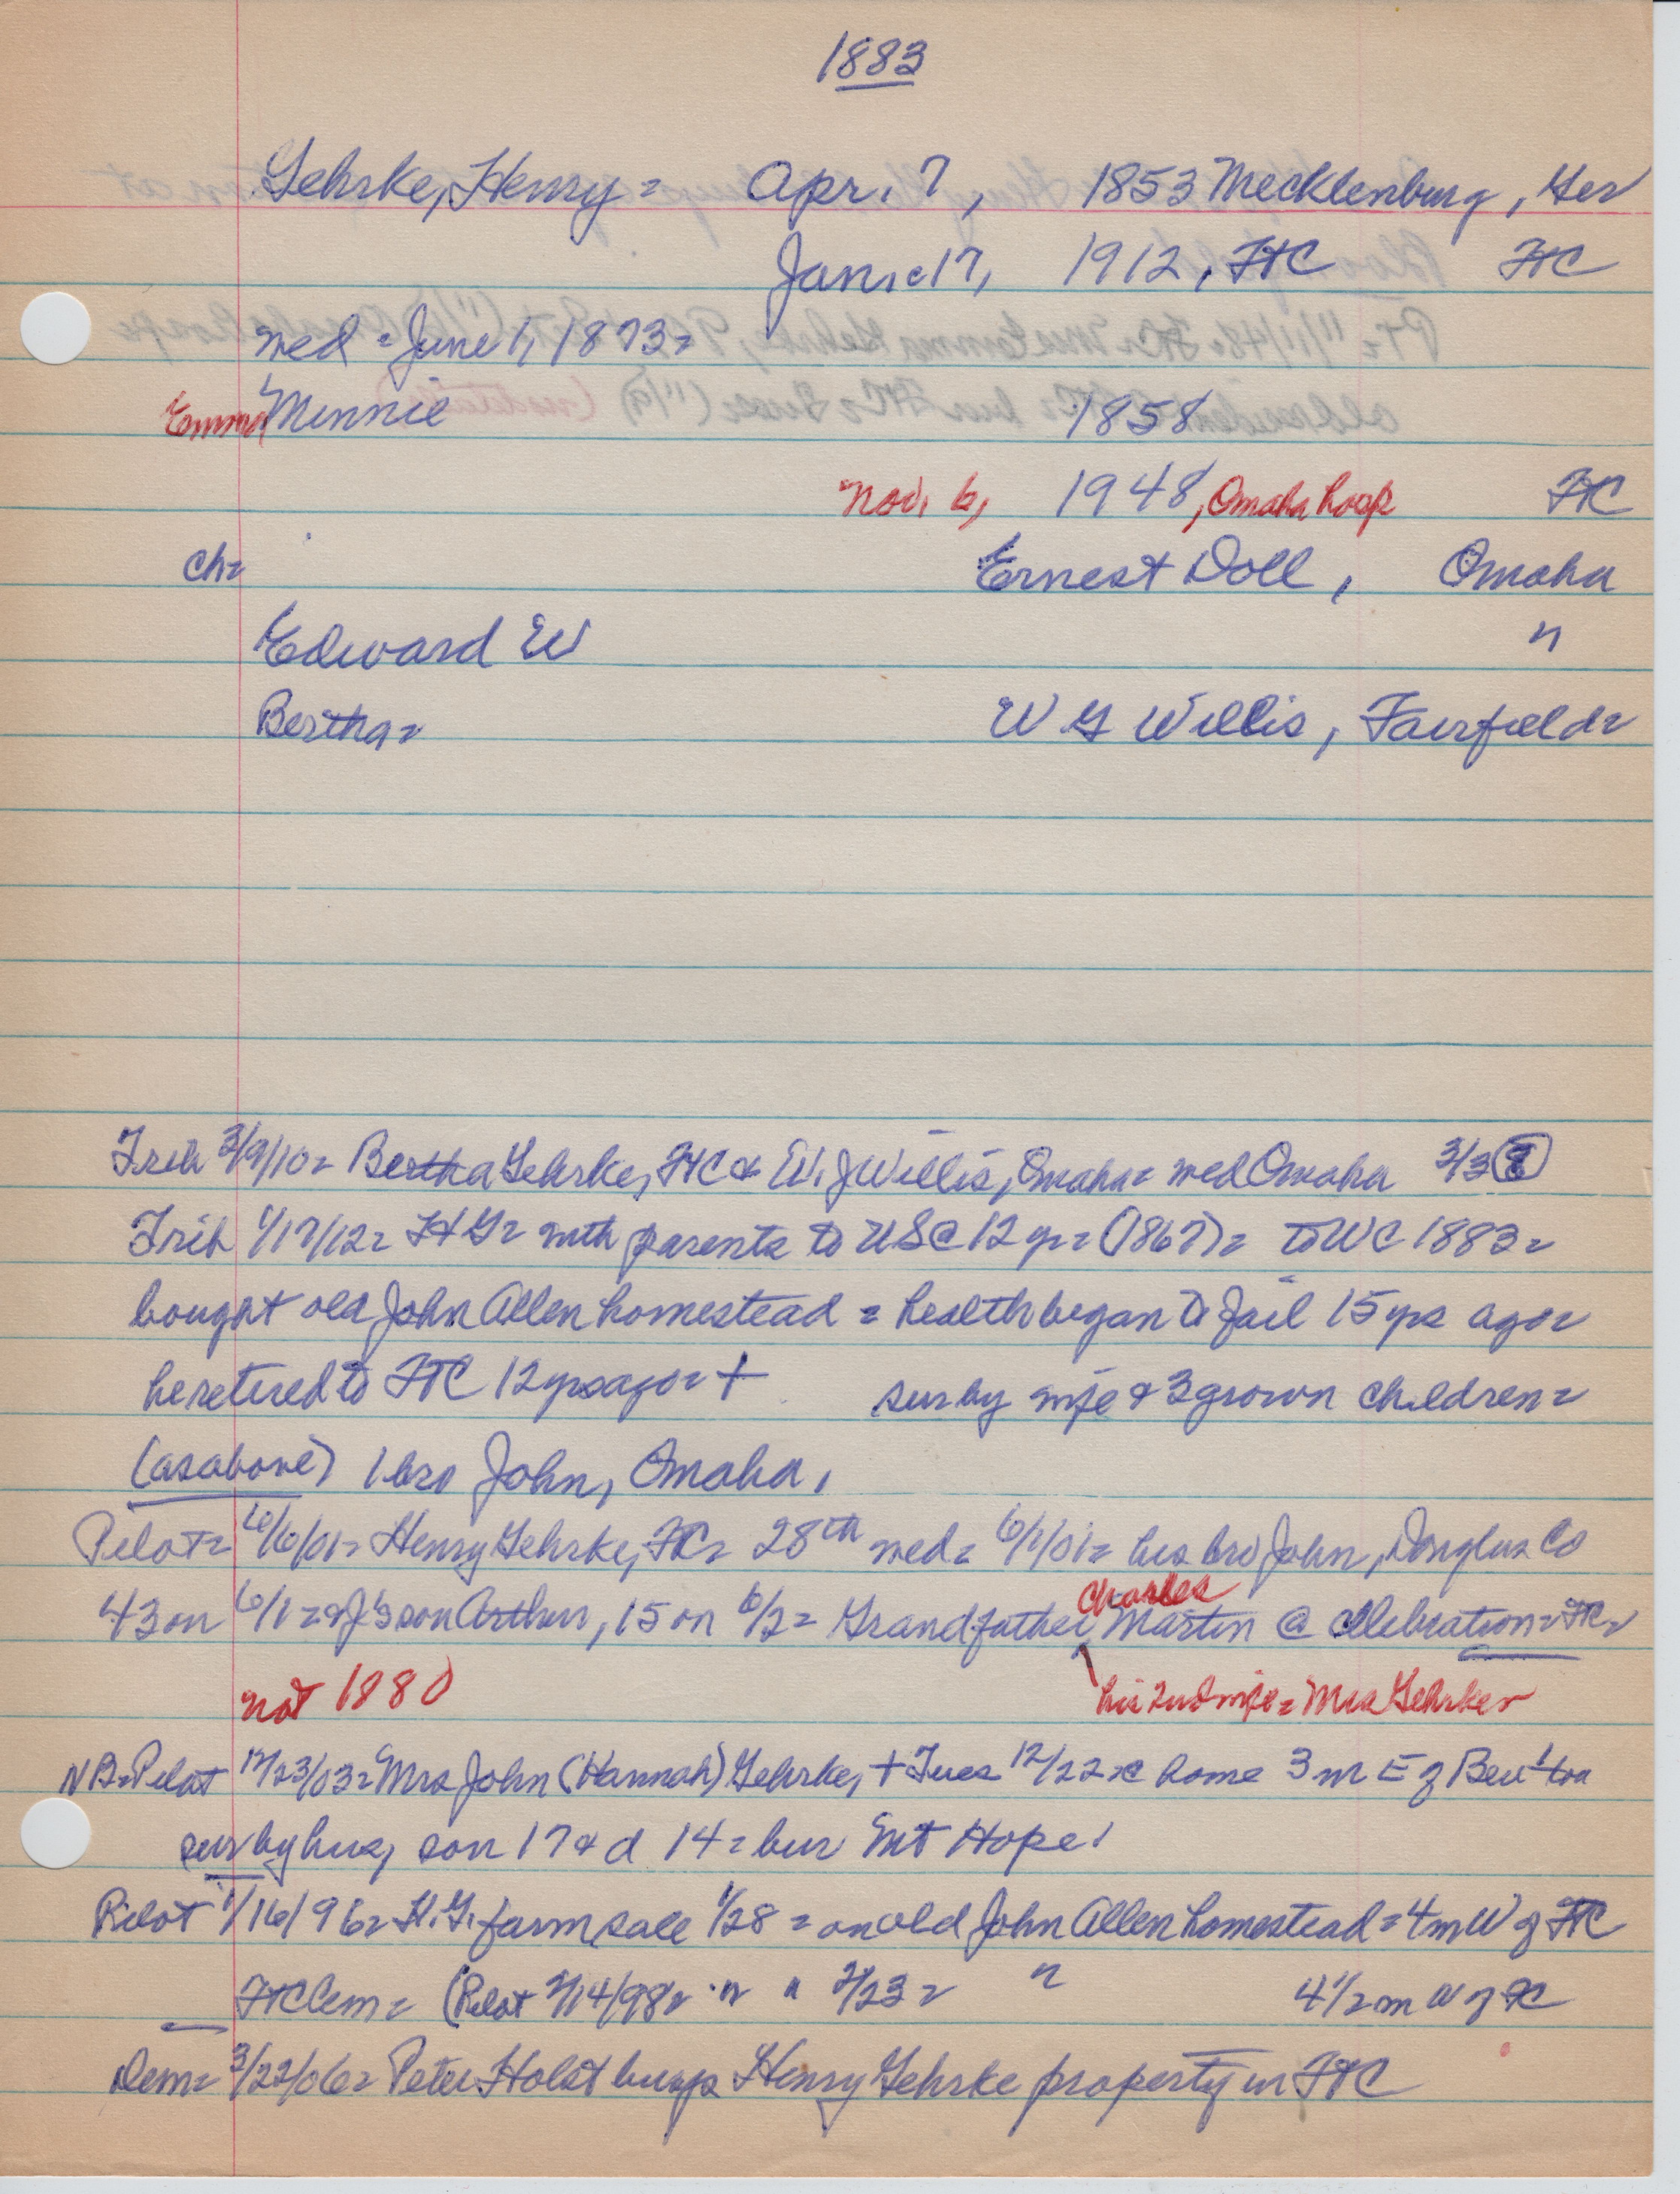 1883
Gehrke, Henry = Apr. 7, 1853 Mecklenburg, Ger
Jan. c17, 1912, FTC FTC
wed = June 1, 1873 =
Emma Minnie 1858
Nov. 6, 1948, Omaha hosp FTC
ch = Ernest Doll, Omaha
Edward W "
Bertha = W G Willis, Fairfield =
Trib 3/9/10 = Bertha Gehrke, FTC & W. J Willis, Omaha = wed Omaha 3/3
Trib 1/17/12 = H G = with parents to US @ 12 yr = (1867) = to WC 1883 =
bought old John Allen homestead = health began to fail 15 yrs ago =
he retired to FTC 12 yrs ago = + sur by wife & 3 grown children =
(as above) 1 bro John, Omaha,
Pilot = 6/6/01 = Henry Gehrke, FTC = 28th wed = 6/1/01 = his bro John, Douglas Co
Charles
43 on 6/1 = & J's son Arthur, 15 on 6/2 = Grandfather, Martin @ celebration = FTC =
not 1880 his 2nd wife = Mrs Gehrke =
NB = Pilot 12/23/03 = Mrs John (Hannah) Gehrke, + Tues 12/22 = @ home 3 m E of Ben'ton
sur by hus, son 17 & d 14 = bur Mt Hope!
Pilot 1/16/96 = H. G. farm sale 1/28 = on old John Allen homestead = 4 m W of FTC
FTC Cem = (Pilot 2/14/98 = " " 2/23 = " 4 1/2 m W of FC
Dem = 3/22/06 = Peter Holst buys Henry Gehrke property in FTC